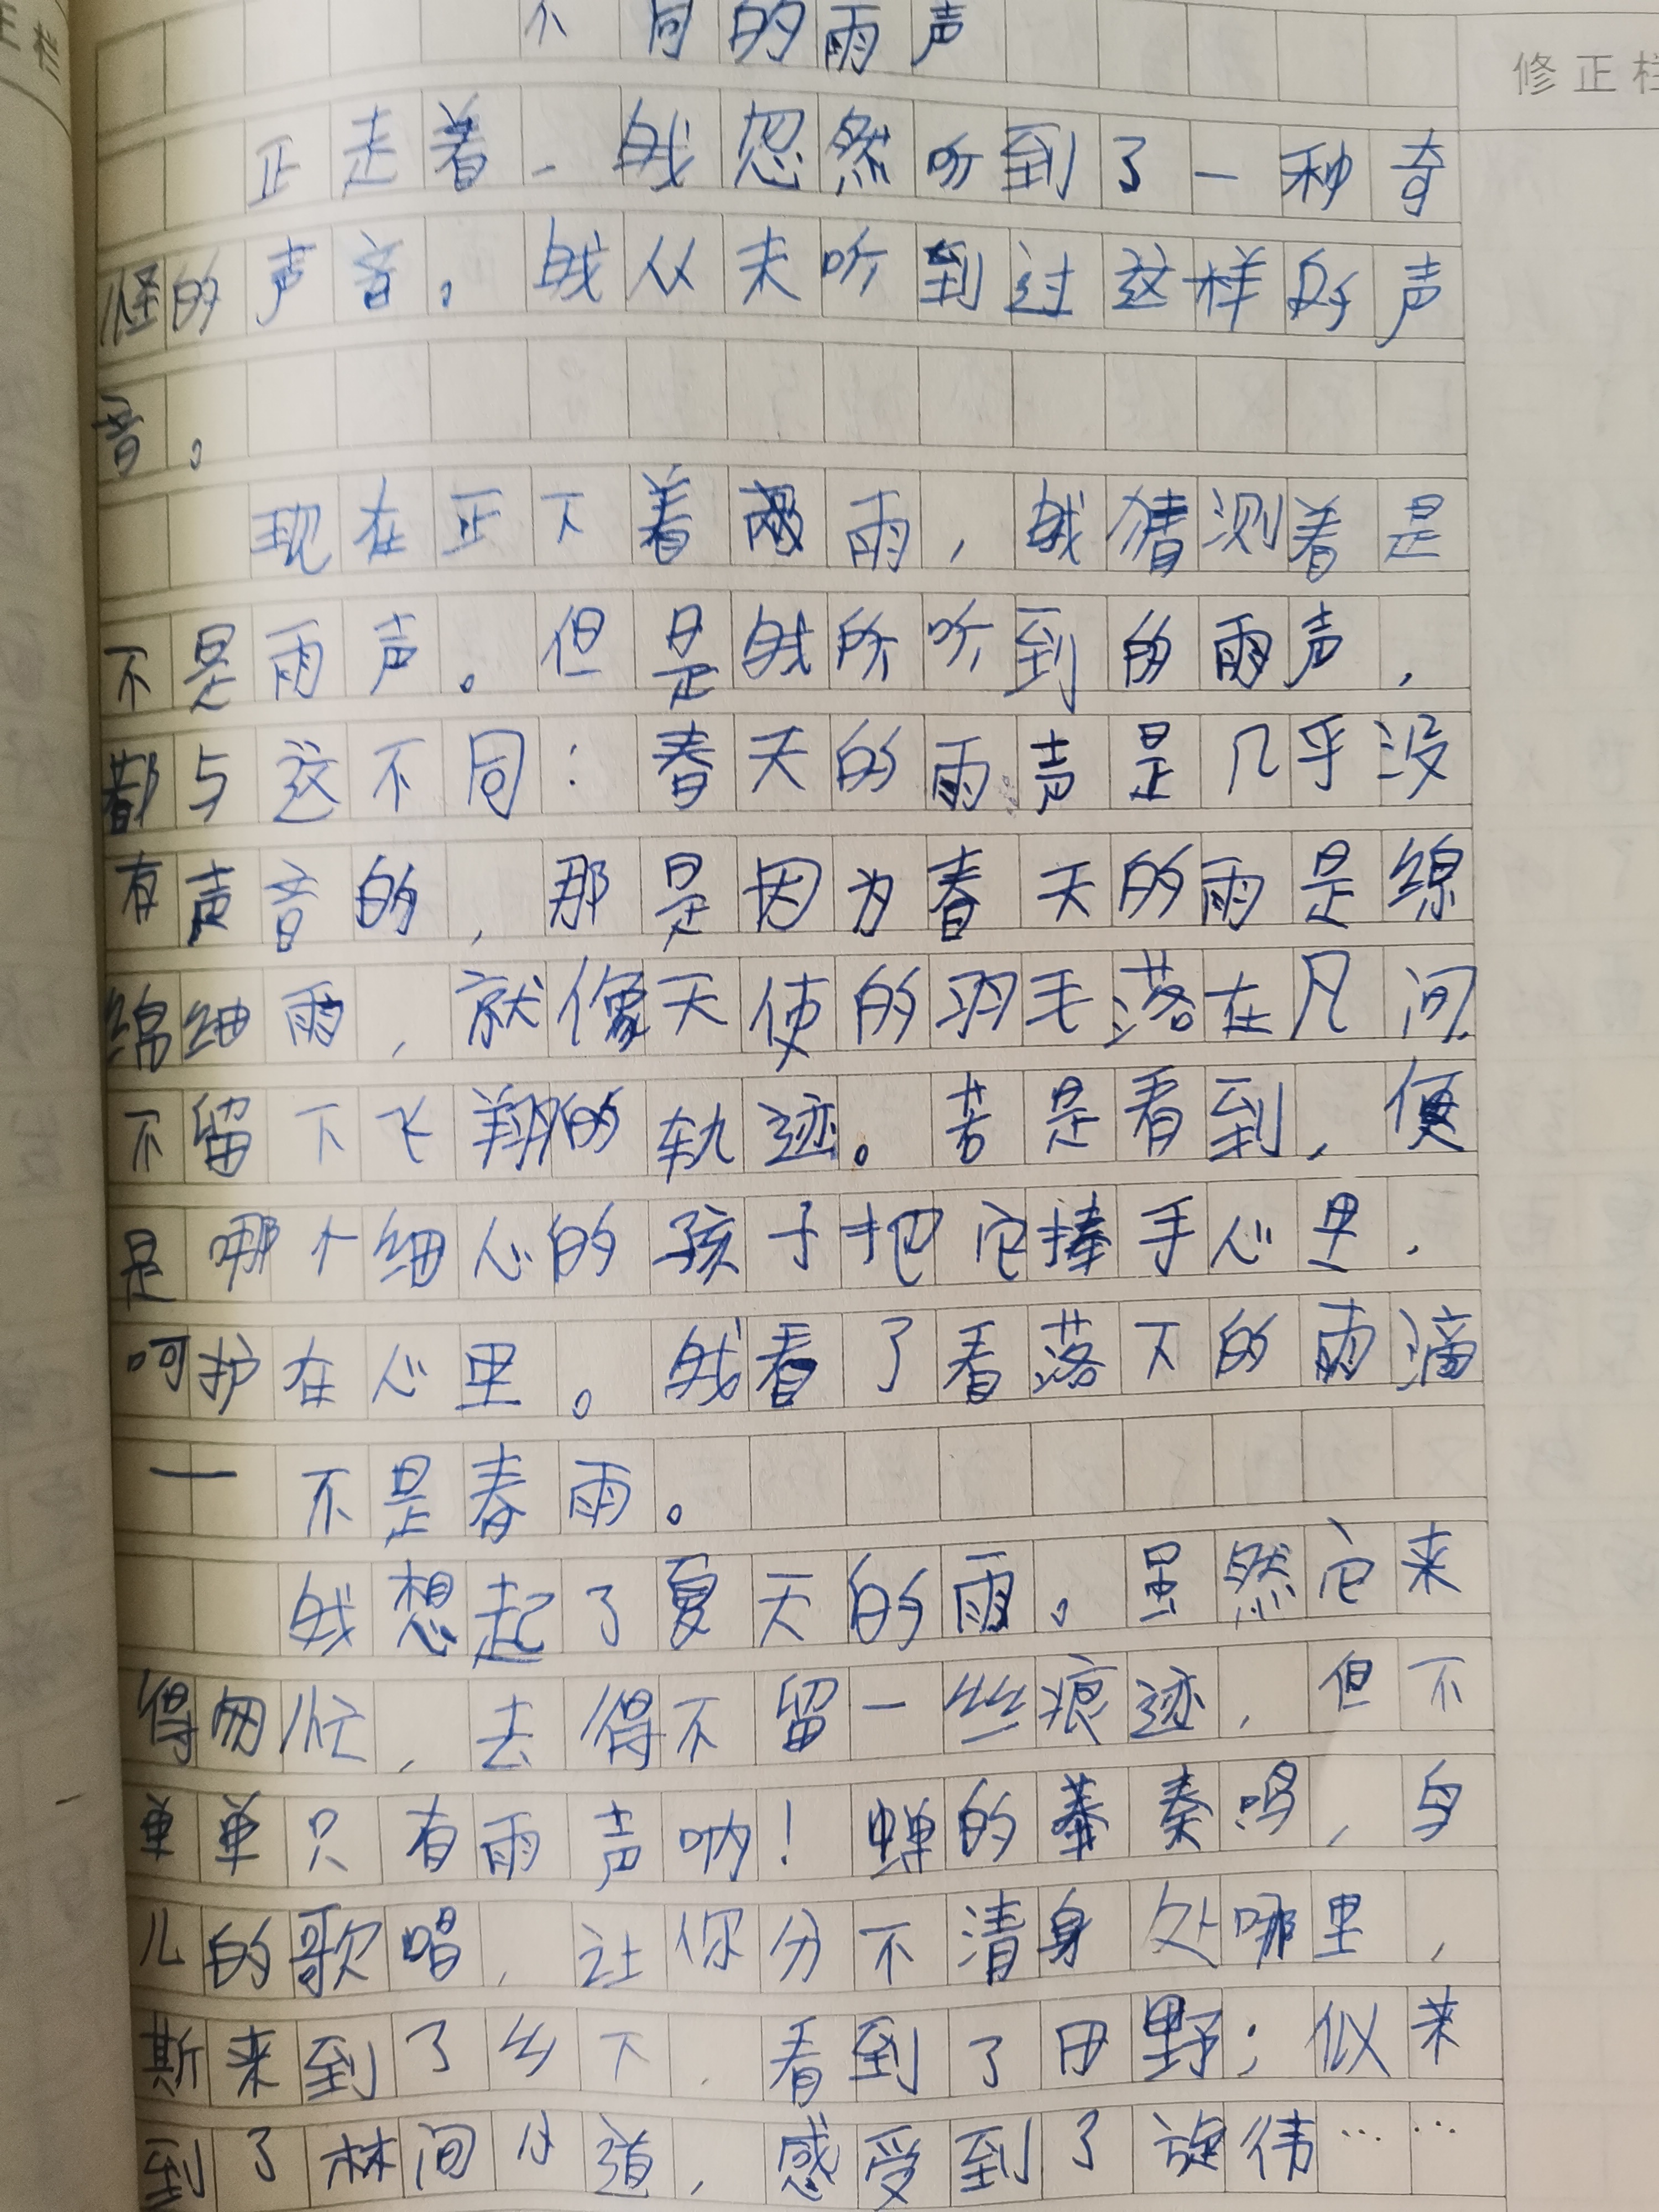 不同的雨声
修正栏
正走着，我忽然听到了一种奇
怪的声音。我从未听到过这样的声
音。
现在正下着雨，我猜测着是
不是雨声。但是我所听到的雨声，
都与这不同：春天的雨声是几乎没
有声音的，那是因为春天的雨是绵
绵细雨，就像天使的羽毛落在凡间
不留下飞翔的轨迹。若是看到，便
是哪个细心的孩子把它捧手心里，
呵护在心里。我看了看落下的雨滴
—不是春雨。
我想起了夏天的雨。虽然它来
得匆忙，去得不留一丝痕迹，但不
单单只有雨声呐！蝉的奏鸣，鸟
儿的歌唱，让你分不清身处哪里，
斯来到了乡下，看到了田野；似来
到了林间小道，感受到了旋律……